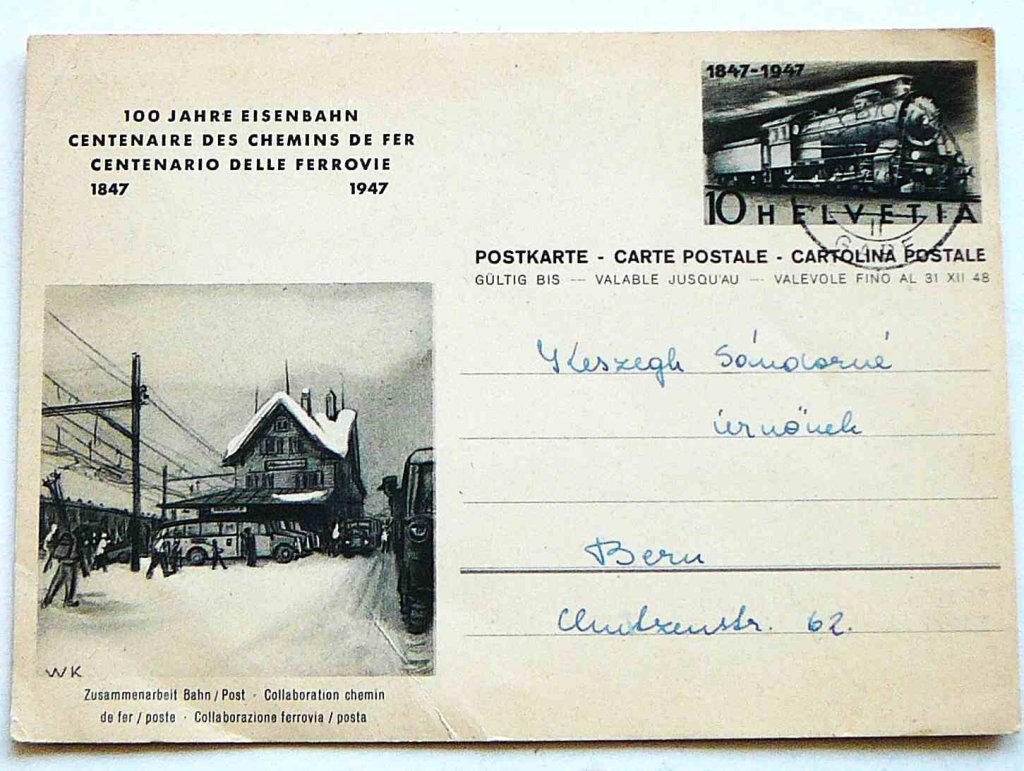 100 JAHRE EISENBAHN
CENTENAIRE DES CHEMINS DE FER
CENTENARIO DELLE FERROVIE
1847 1947
1847-1947
10 HELVETIA
POSTKARTE - CARTE POSTALE - CARTOLINA POSTALE
GÜLTIG BIS — VALABLE JUSQU'AU — VALEVOLE FINO AL 31 XII 48
Keszegh Sándorné
úrnőnek
Bern
62.
WK
Zusammenarbeit Bahn / Post · Collaboration chemin
de fer / poste · Collaborazione ferrovia / posta